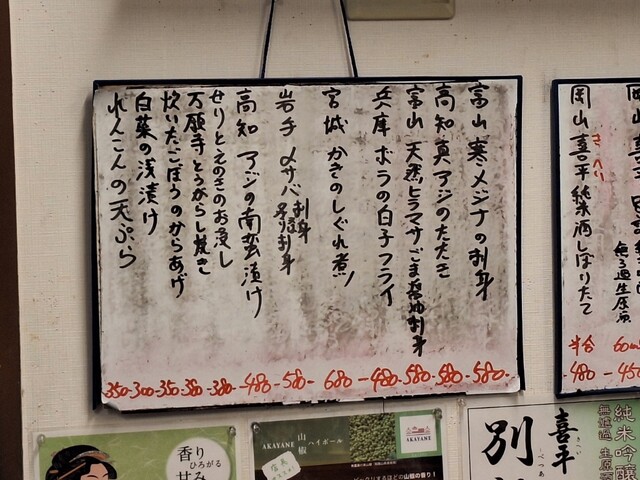 富山 寒メジナの刺身 580-
高知 真アジのたたき 580-
富山 天然ヒラマサごま醤油刺身 580-
兵庫 ボラの白子フライ 480-
宮城 かきのしぐれ煮 680-
岩手 〆サバ刺身 580-
高知 アジの南蛮漬け 480-
せりとえのきのお浸し 380-
万願寺とうがらし焼き 380-
炊いたごぼうのからあげ 350-
白菜の浅漬け 300-
れんこんの天ぷら 350-
岡山 喜平 純米酒しぼりたて
きへい
半合
480-
無ろ過生原酒
香り
ひろがる
甘み
AKAYANE 山椒 ハイボール
AKAYANE
喜平
別
純米吟醸
無濾過 生原酒